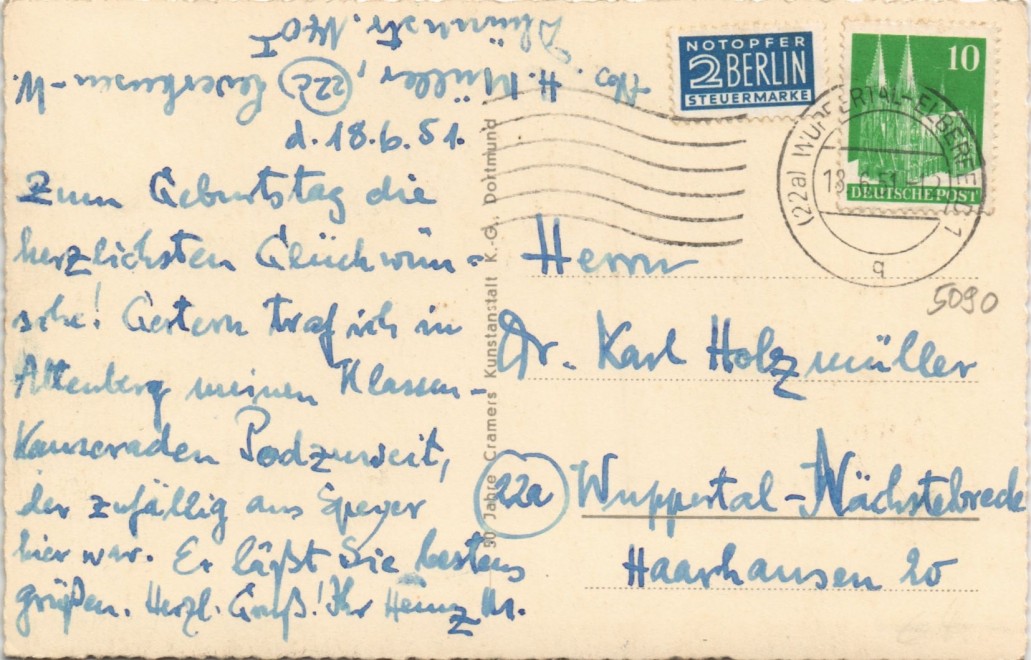 Abs. H. Müller, (22c) Leverkusen-W.
Dhünnstr. 140 I
d. 18.6.51.
Zum Geburtstag die
herzlichsten Glückwün-
sche! Gestern traf ich in
Altenberg meinen Klassen-
Kameraden Podzuweit,
der zufällig aus Speyer
hier war. Er läßt Sie bestens
grüßen. Herzl. Gruß! Ihr Heinz M.
50 Jahre Cramers Kunstanstalt K.-G., Dortmund
NOTOPFER
2 BERLIN
STEUERMARKE
10
DEUTSCHE POST
(22a) WUPPERTAL-ELBERFELD 1
18.6.51
q
5090
Herrn
Dr. Karl Holzmüller
22a Wuppertal-Nächstebreck
Haarhausen 20